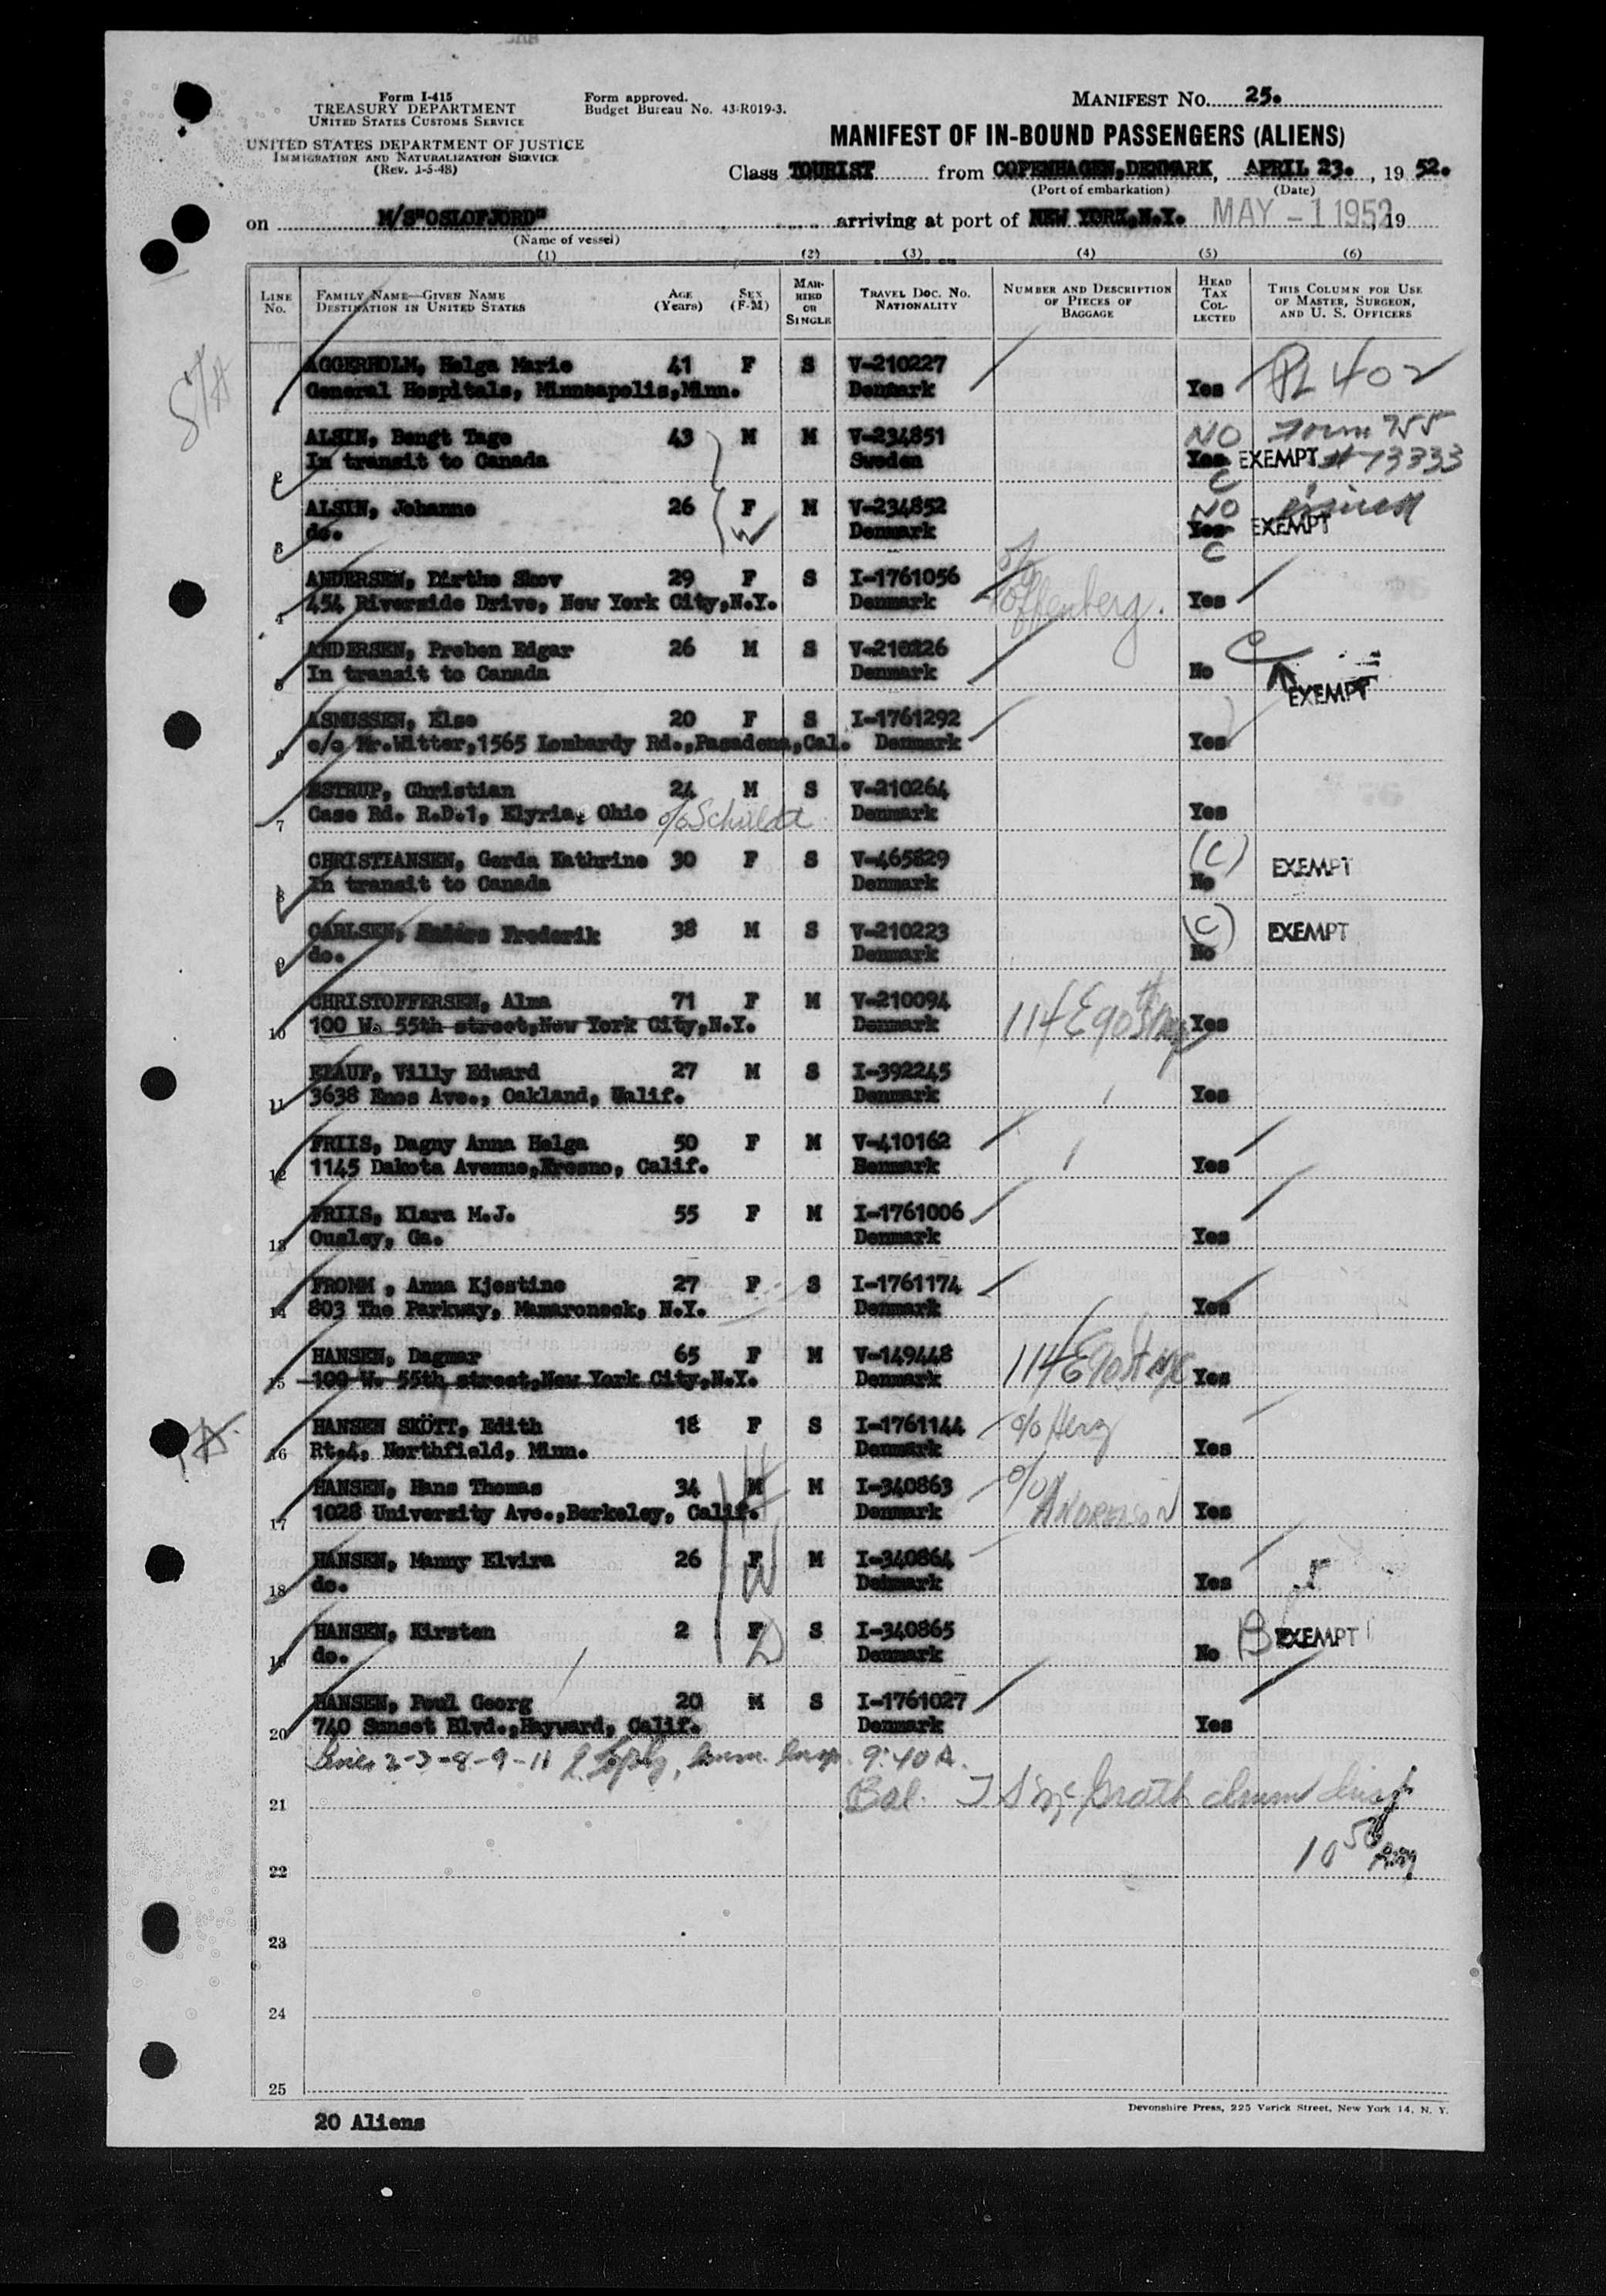 Form I-415
TREASURY DEPARTMENT
UNITED STATES CUSTOMS SERVICE
UNITED STATES DEPARTMENT OF JUSTICE
IMMIGRATION AND NATURALIZATION SERVICE
(Rev. 1-5-48)
Form approved.
Budget Bureau No. 43-R019-3.
MANIFEST NO. 25.
MANIFEST OF IN-BOUND PASSENGERS (ALIENS)
Class TOURIST from COPENHAGEN,DENMARK, APRIL 23., 19 52.
(Port of embarkation) (Date)
on M/S"OSLOFJORD" arriving at port of NEW YORK,N.Y. MAY -1 1952, 19
(Name of vessel)
(1) (2) (3) (4) (5) (6)
LINE NO. FAMILY NAME—GIVEN NAME DESTINATION IN UNITED STATES AGE (Years) SEX (F-M) MARRIED OR SINGLE TRAVEL DOC. NO. NATIONALITY NUMBER AND DESCRIPTION OF PIECES OF BAGGAGE HEAD TAX COLLECTED THIS COLUMN FOR USE OF MASTER, SURGEON, AND U. S. OFFICERS
AGGERHOLM, Helga Marie 41 F S V-210227 PL 402
General Hospitals, Minneapolis,Minn. Denmark Yes
ALSIN, Bengt Tage 43 M M V-234851 NO Form 755
2 In transit to Canada Sweden Yes EXEMPT # 73333
C
ALSIN, Johanne 26 F M V-234852 NO
3 do. W Denmark Yes EXEMPT
C
ANDERSEN, Dirthe Skov 29 F S I-1761056 c/o
4 454 Riverside Drive, New York City,N.Y. Denmark Offenberg. Yes
ANDERSEN, Preben Edgar 26 M S V-210226 C
5 In transit to Canada Denmark No EXEMPT
ASMUSSEN, Else 20 F S I-1761292
6 c/o Mr.Witter,1565 Lombardy Rd.,Pasadena,Cal. Denmark Yes
ESTRUP, Christian 24 M S V-210264
7 Case Rd. R.D.1, Elyria, Ohio c/o Schuldt Denmark Yes
CHRISTIANSEN, Gerda Kathrine 30 F S V-465829 (C) EXEMPT
8 In transit to Canada Denmark No
CARLSEN, Frederik 38 M S V-210223 (C) EXEMPT
9 do. Denmark No
CHRISTOFFERSEN, Alma 71 F M V-210094
10 100 W. 55th street,New York City,N.Y. Denmark 114 E 90th St NYC Yes
ELAUF, Villy Edward 27 M S I-392245
11 3638 Enos Ave., Oakland, Walif. Denmark Yes
FRIIS, Dagny Anna Helga 50 F M V-410162
12 1145 Dakota Avenue,Fresno, Calif. Denmark Yes
FRIIS, Klara M.J. 55 F M I-1761006
13 Ousley, Ga. Denmark Yes
FROMM , Anna Kjestine 27 F S I-1761174
14 803 The Parkway, Mamaroneck, N.Y. Denmark Yes
HANSEN, Dagmar 65 F M V-149448
15 100 W. 55th street,New York City,N.Y. Denmark 114 E 90 St NYC Yes
HANSEN SKÖTT, Edith 18 F S I-1761144 c/o Herz
16 Rt.4, Northfield, Minn. Denmark Yes
HANSEN, Hans Thomas 34 M M I-340863 c/o
17 1028 University Ave.,Berkeley, Calif. H Denmark ANDERSON Yes
HANSEN, Manny Elvira 26 F M I-340864
18 do. W Denmark Yes
HANSEN, Kirsten 2 F S I-340865 B EXEMPT
19 do. D Denmark No
HANSEN, Poul Georg 20 M S I-1761027
20 740 Sunset Blvd.,Hayward, Calif. Denmark Yes
Lines 2-3-8-9-11 Imm. Insp. 9:40 A.
21 Bal.
10 50 AM
22
23
24
25
20 Aliens
Devonshire Press, 225 Varick Street, New York 14, N. Y.